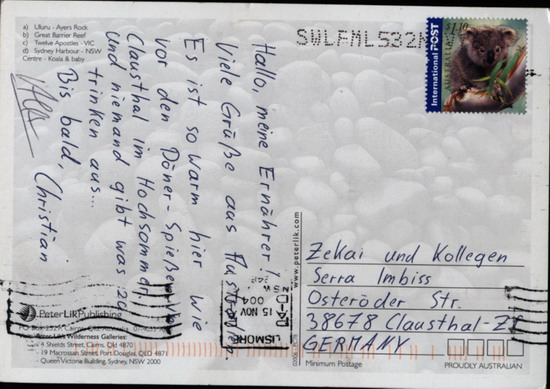 a) Uluru - Ayers Rock
b) Great Barrier Reef
c) Twelve Apostles - VIC
d) Sydney Harbour - NSW
Centre - Koala & baby
SWLFML532
International POST
Hallo, meine Ernährer,
Viele Grüße aus Australien.
Es ist so warm hier wie
vor den Döner-Spießen von
Clausthal im Hochsommer,
und niemand gibt was zu
trinken aus...
Bis bald, Christian
www.peterlik.com
LISMORE
15 NOV
Zekai und Kollegen
Serra Imbiss
Osteröder Str.
38678 Clausthal-Z
GERMANY
Peter Lik Publishing
Peter Lik Wilderness Galleries:
4 Shields Street, Cairns, Qld 4870
19 Macrossan Street, Port Douglas, QLD 4871
Queen Victoria Building, Sydney, NSW 2000
Minimum Postage
PROUDLY AUSTRALIAN